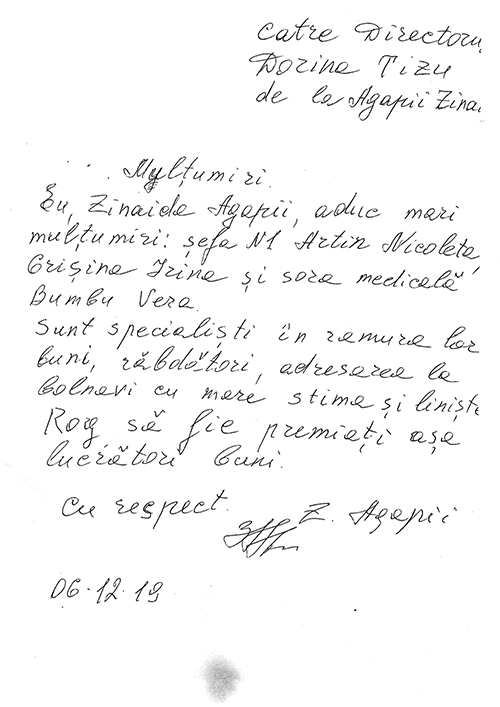 Catre Directoru
Dorina Tizu
de la Agapii Zina
Mulțumiri.
Eu, Zinaida Agapii, aduc mari
mulțumiri: șefa N1 Artin Nicoleta,
Grișina Irina și sora medicală
Bumbu Vera.
Sunt specialiști în ramura lor
buni, răbdători, adresarea la
bolnavi cu mare stima și liniște
Rog să fie premiați așa
lucrători buni.
Cu respect. Z. Agapii
06.12.19